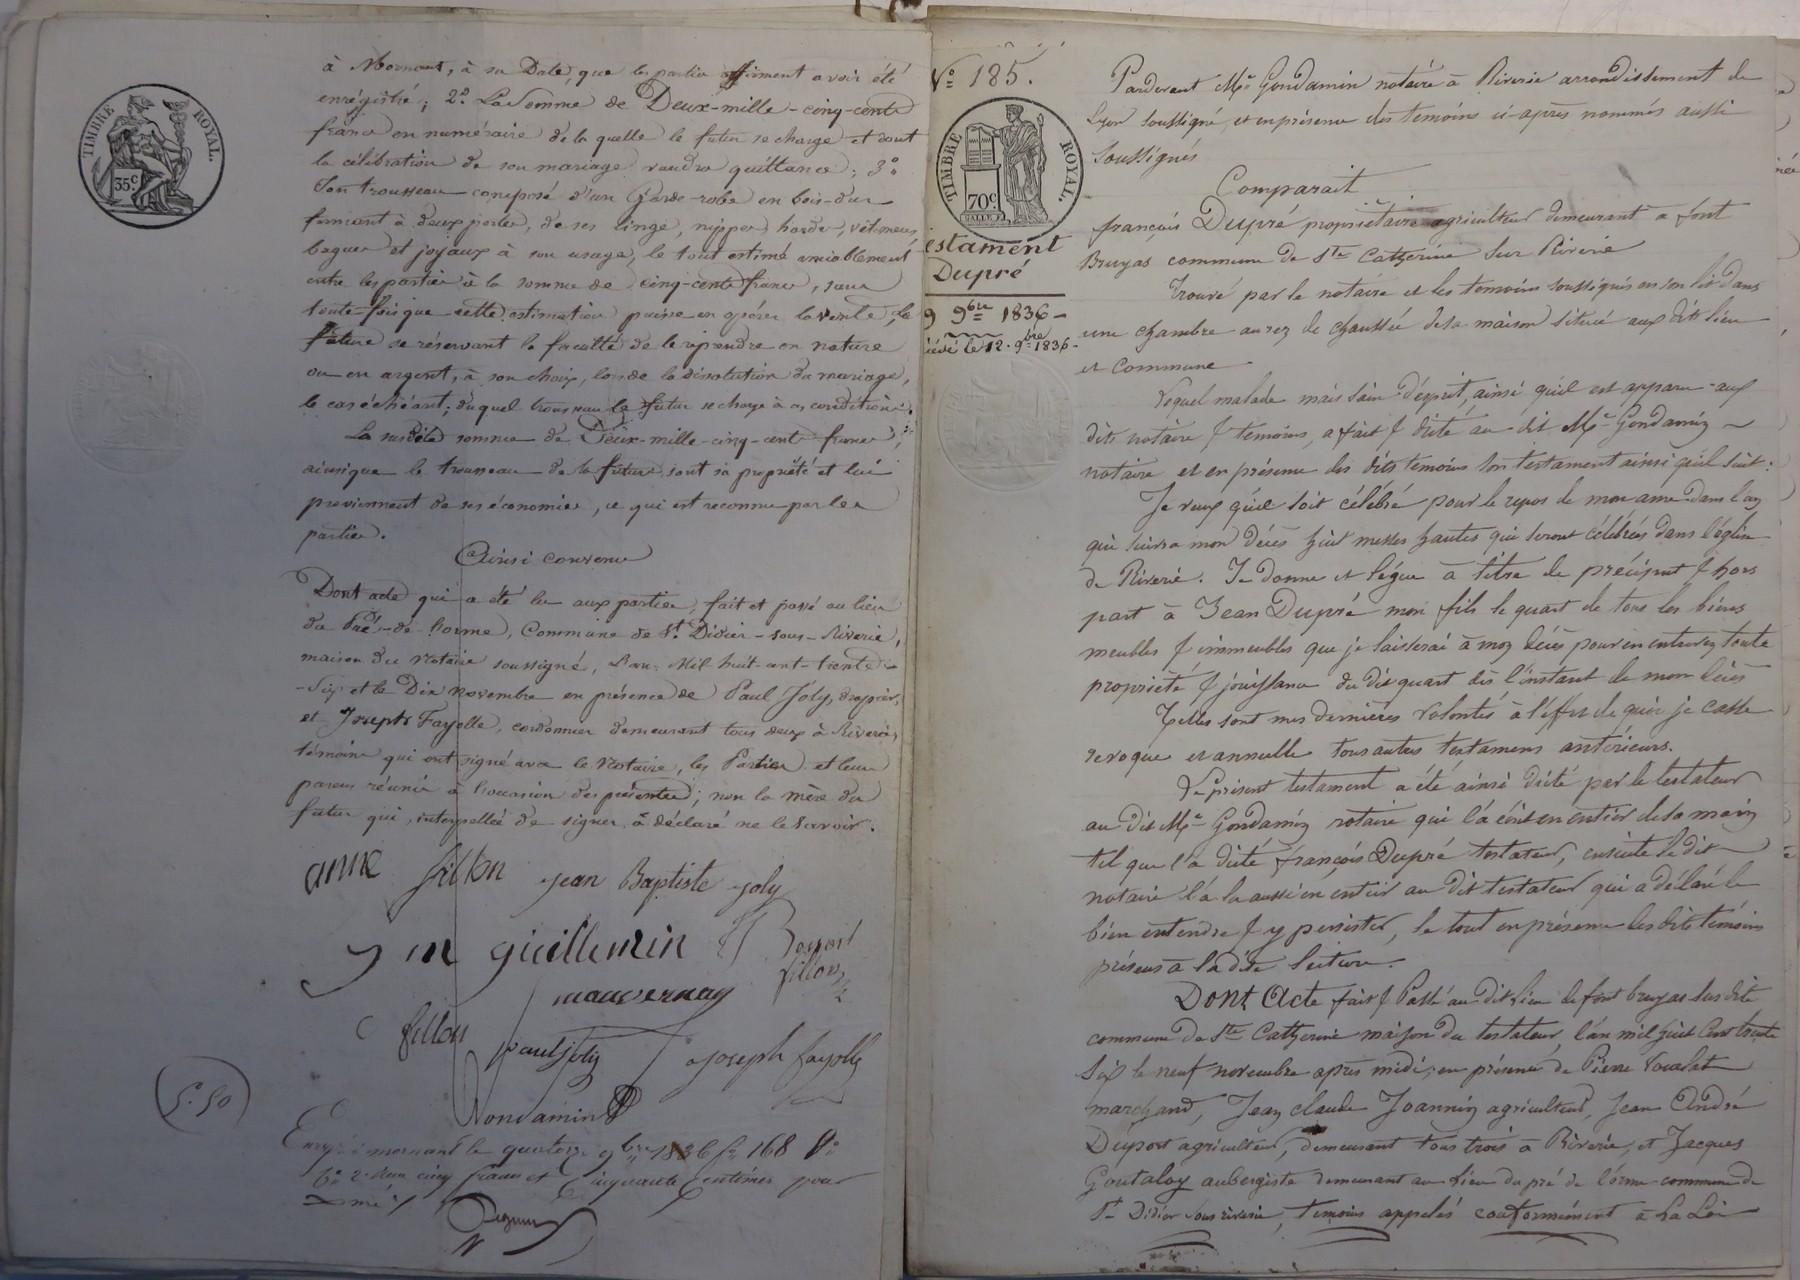 TIMBRE ROYAL.
35c
à Mornant, à sa Date, que les parties affirment avoir été
enrégistré; 2.º La Somme de Deux-mille-cinq-cents
francs en numéraire de la quelle le futur se charge et dont
la célébration de son mariage vaudra quittance; 3.º
Son trousseau composé d'un Garde-robe en bois-dur
fermant à deux portes, de ses linge, nippes, hardes, vêtemens
bagues et joyaux à son usage, le tout estimé amiablement
entre les parties à la somme de cinq-cents francs, sans
toute-fois que cette estimation puisse en opérer la vente, la
future se réservant la faculté de le reprendre en nature
ou en argent, à son choix, lors de la dissolution du mariage,
le cas échéant; du quel trousseau le futur se charge à ces conditions.
La susdite somme de Deux-mille-cinq-cents francs,
ainsique le trousseau de la future sont sa propriété et lui
proviennent de ses économies, ce qui est reconnu par les
parties.
Ainsi convenu
Dont acte qui a été lu aux parties, fait et passé au lieu
du Pré-de-lorme, Commune de St. Didier-sous-Riverie,
maison du Notaire soussigné, L'an Mil huit-cent-trente
-Six et le Dix novembre en présence de Paul Joly, drapier,
et Joseph Fayolle, cordonnier demeurant tous deux à Riverie,
témoins qui ont signé avec le Notaire, les Parties et leurs
parens réunis à l'occasion des présentes; non la mère du
futur qui, interpellée de signer, a déclaré ne le savoir.
anne fillon jean Baptiste joly
guillemin
fillon
mauvernay
fillon
paul joly joseph fayolle
Gondamin
5.50
Enrgé à mornant le quatorze 9bre 1836 fo 168 Vo
co 2. Reçu cinq francs et Cinquante Centimes pour
No 185.
TIMBRE ROYAL.
70c
estament
Dupré
9 9bre 1836
le 12. 9bre 1836
Pardevant Me Gondamin notaire à Riverie arrondissement de
Lyon soussigné, et en présence des temoins ci-après nommés aussi
Soussignés
Comparait
françois Dupré propriétaire agriculteur demeurant à font
Bruyas commune de Ste Catherine Sur Riverie
Trouvé par le notaire et les temoins soussignés en son lit dans
une chambre au rez de chaussée de sa maison située aux dits lieu
et Commune
Lequel malade mais sain d'esprit, ainsi qu'il est apparu aux
dits notaire & temoins, a fait & dicté au dit Me Gondamin
notaire et en présence des dits temoins son testament ainsi qu'il suit:
Je veux qu'il soit célébré pour le repos de mon ame dans l'an
qui suivra mon décès huit messes hautes qui seront célébrées dans l'église
de Riverie. Je donne et légue à titre de préciput & hors
part à Jean Dupré mon fils le quart de tous les biens
meubles & immeubles que je laisserai à mon décès pour en entrer en toute
propriété & jouissance du dit quart dès l'instant de mon décès
Telles sont mes dernières volontés à l'effet de quoi je casse
revoque et annulle tous autres testamens antérieurs.
Le présent testament a été ainsi dicté par le testateur
au dit Me Gondamin notaire qui l'a écrit en entier de sa main
tel que l'a dicté françois Dupré testateur, ensuite le dit
notaire l'a lu aussi en entier au dit testateur qui a déclaré le
bien entendre & y persister, le tout en présence des dits témoins
présens à la dite lecture.
Dont Acte fait & Passé au dit lieu de font bruyas susdite
commune de Ste Catherine maison du testateur, l'an mil huit Cent trente
Six le neuf novembre après midi, en présence de Pierre
marchand, Jean claude Joannin agriculteur, Jean André
Duport agriculteur, demeurant tous trois à Riverie, et Jacques
Goutaloy aubergiste demeurant au Lieu du pré de l'orme commune de
St Didier sous riverie, temoins appelés conformément à La Loi